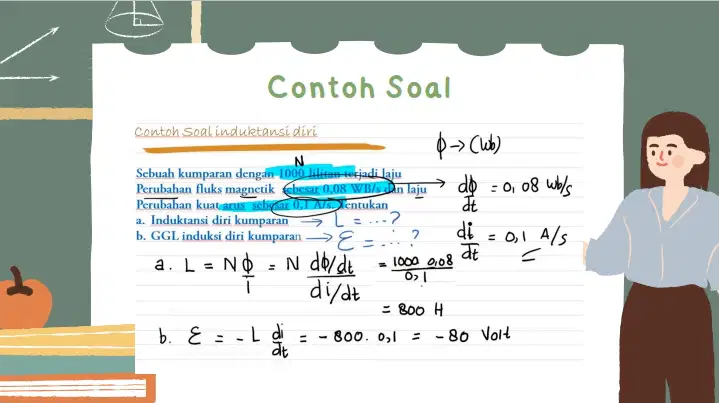 Contoh Soal
Contoh Soal induktansi diri
ϕ → (Wb)
N
Sebuah kumparan dengan 1000 lilitan terjadi laju
Perubahan fluks magnetik sebesar 0,08 WB/s dan laju
Perubahan kuat arus sebesar 0,1 A/s. Tentukan
a. Induktansi diri kumparan → L = ...?
b. GGL induksi diri kumparan → ε = ...?
dϕ/dt = 0,08 wb/s
di/dt = 0,1 A/s
a. L = N ϕ/I = N dϕ/dt / di/dt = 1000 0,08 / 0,1
= 800 H
b. ε = - L di/dt = - 800. 0,1 = - 80 Volt